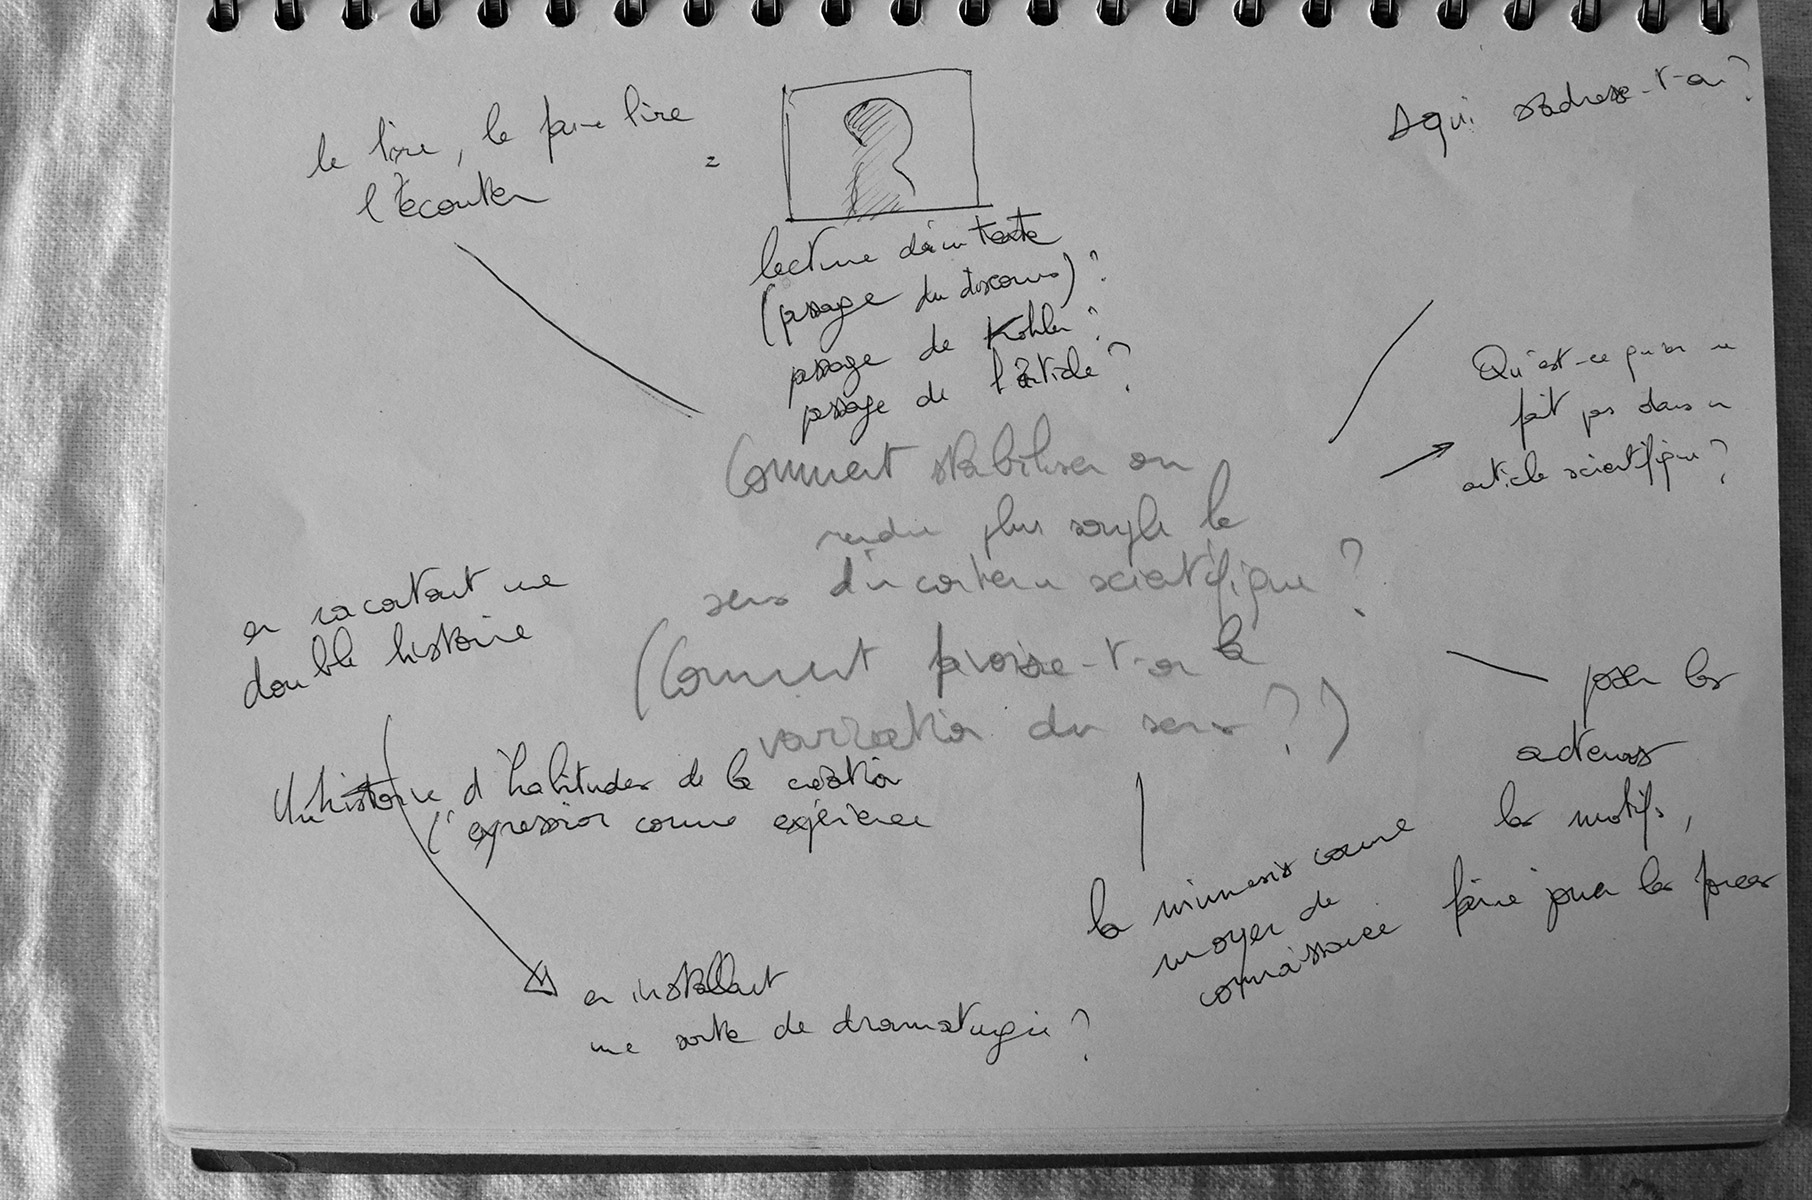 le lire, le faire lire
l'écouter
=
lecture d'un texte
(passage du discours)?
passage de Kohler?
passage de l'article?
A qui s'adresse-t-on?
Qu'est-ce qu'on ne
fait pas dans un
article scientifique?
Comment stabiliser ou
rendre plus souple le
sens d'un contenu scientifique?
(Comment favorise-t-on la
variation du sens?)
en racontant une
double histoire
Un histoire d'habitudes de la création
l'expression comme expérience
en installant
une sorte de dramaturgie?
la mimesis comme
moyen de
connaissance
poser les
acteurs
les motifs,
faire jouer les forces